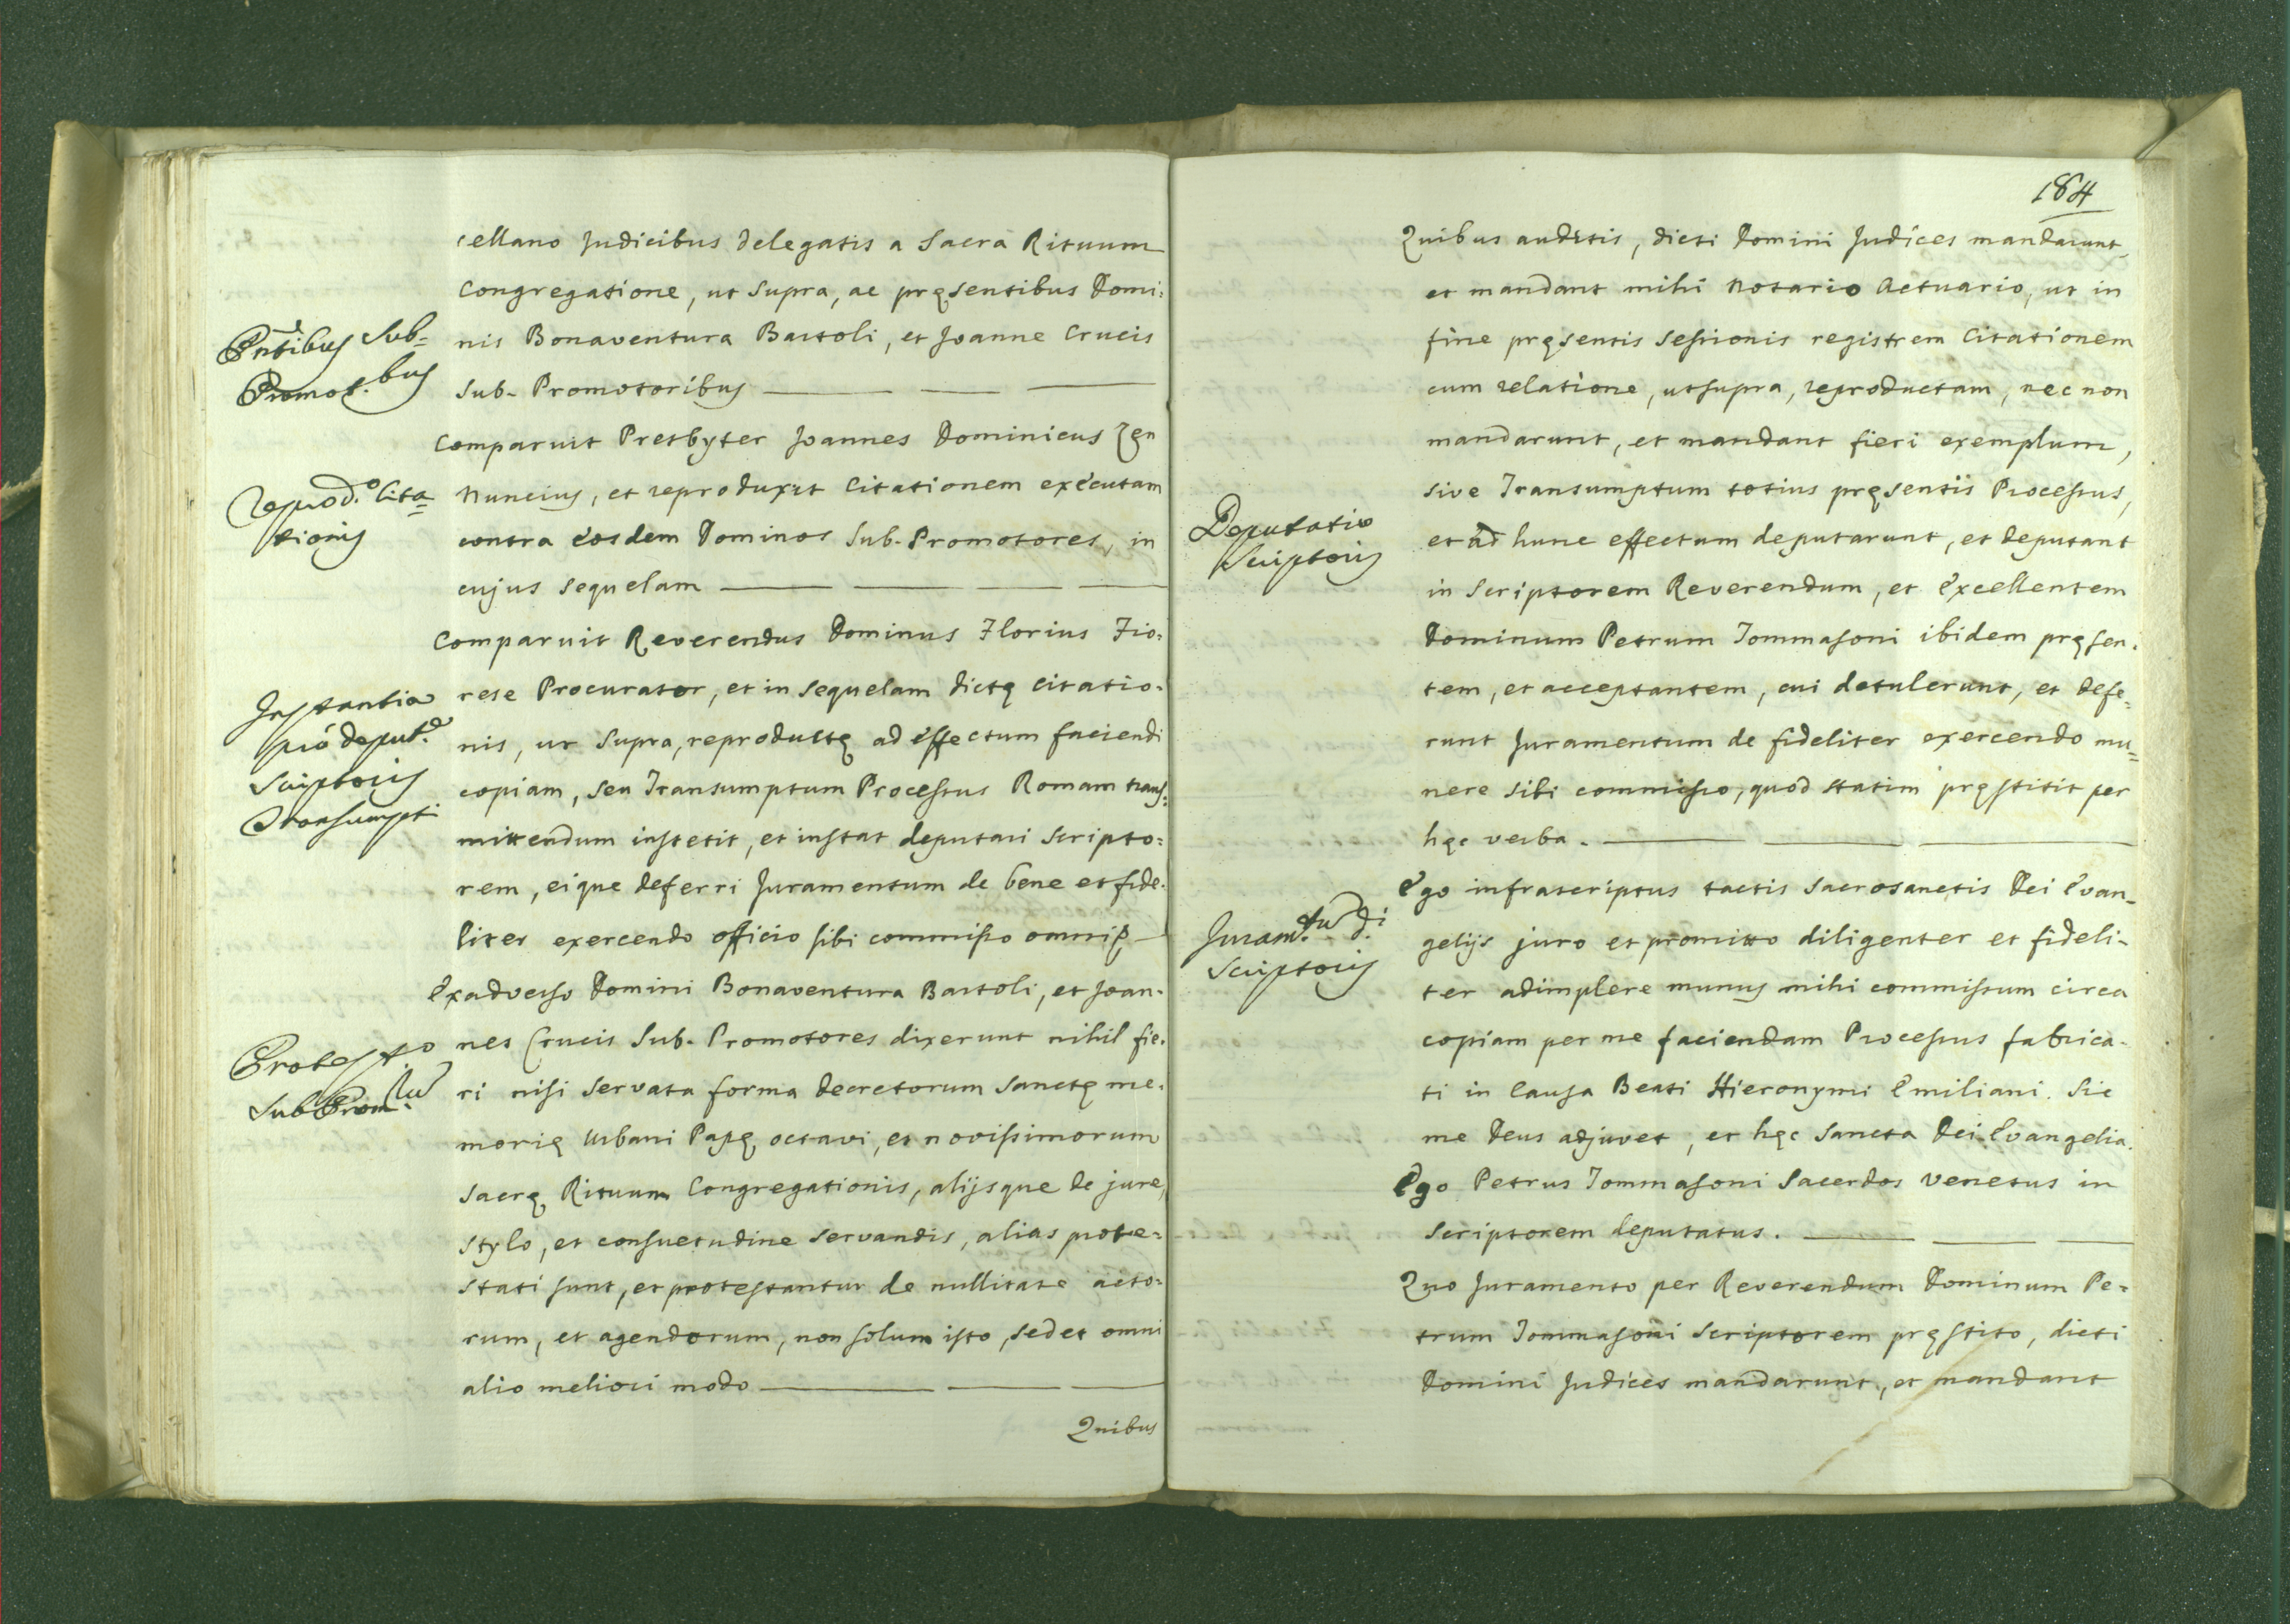 cellano Judicibus delegatis a Sacra Rituum
Congregatione, ut supra, ac pręsentibus Domi:
Pñtibus Sub=
Promot.bus
nis Bonaventura Bartoli, et Joanne Crucis
Sub-Promotoribus
Comparuit Presbyter Joannes Dominicus Zen
Reprod.o Cita=
tionis
Nuncius, et reproduxit Citationem exécutam
contra éosdem Dominos Sub-Promotores, in
cujus sequelam
Comparuit Reverendus Dominus Florius Fio:
Instantia
pró deput.e
Scriptoris
Transumpti
rese Procurator, et in sequelam dictę citatio:
nis, ut supra, reproductę ad éffectum faciendi
copiam, seu Transumptum Processus Romam trans=
mittendum instetit, et instat deputari Scripto:
rem, eique deferri Juramentum de bene et fide:
liter exercendo officio sibi commisso omni
Exadverso Domini Bonaventura Bartoli, et Joan-
Protest.o
Sub Prom.
nes Crucis Sub-Promotores dixerunt nihil fie:
ri nisi servata forma decretorum Sanctę me:
morię Urbani Papę octavi, et novissimorum
Sacrę Rituum Congregationis, alijsque de jure,
stylo, et consuetudine servandis, alias prote=
stati sunt, et protestantur de nullitate acto:
rum, et agendorum, non solum isto, sed et omni
alio meliori modo
Quibus
184
Quibus auditis, dicti Domini Judices mandarunt,
et mandant mihi Notario Actuario, ut in
fine pręsentis sessionis registrem Citationem
cum relatione, utsupra, reproductam, nec non
mandarunt, et mandant fieri exemplum,
sive Transumptum totius pręsentis Processus,
Deputatio
Scriptoris
et ad hunc effectum deputarunt, et deputant
in Scriptorem Reverendum, et Excellentem
Dominum Petrum Tommasoni ibidem pręsen:
tem, et acceptantem, cui detulerunt, et defe=
runt Juramentum de fideliter exercendo mu=
nere sibi commisso, quod statim pręstitit per
hęc verba.
Ego infrascriptus tactis Sacrosanctis Dei Evan_
Juram.tu d.i
Scriptoris
gelijs juro et promitto diligenter et fideli-
ter adimplere munus mihi commissum circa
copiam per me faciendam Processus fabrica-
ti in Causa Beati Hieronymi Emiliani. Sic
me Deus adjuvet, et hęc Sancta Dei Evangelia.
Ego Petrus Tommasoni Sacerdos Venetus in
Scriptorem deputatus.
Quo Juramento per Reverendum Dominum Pe=
trum Tommasoni Scriptorem pręstito, dicti
Domini Judices mandarunt, et mandant